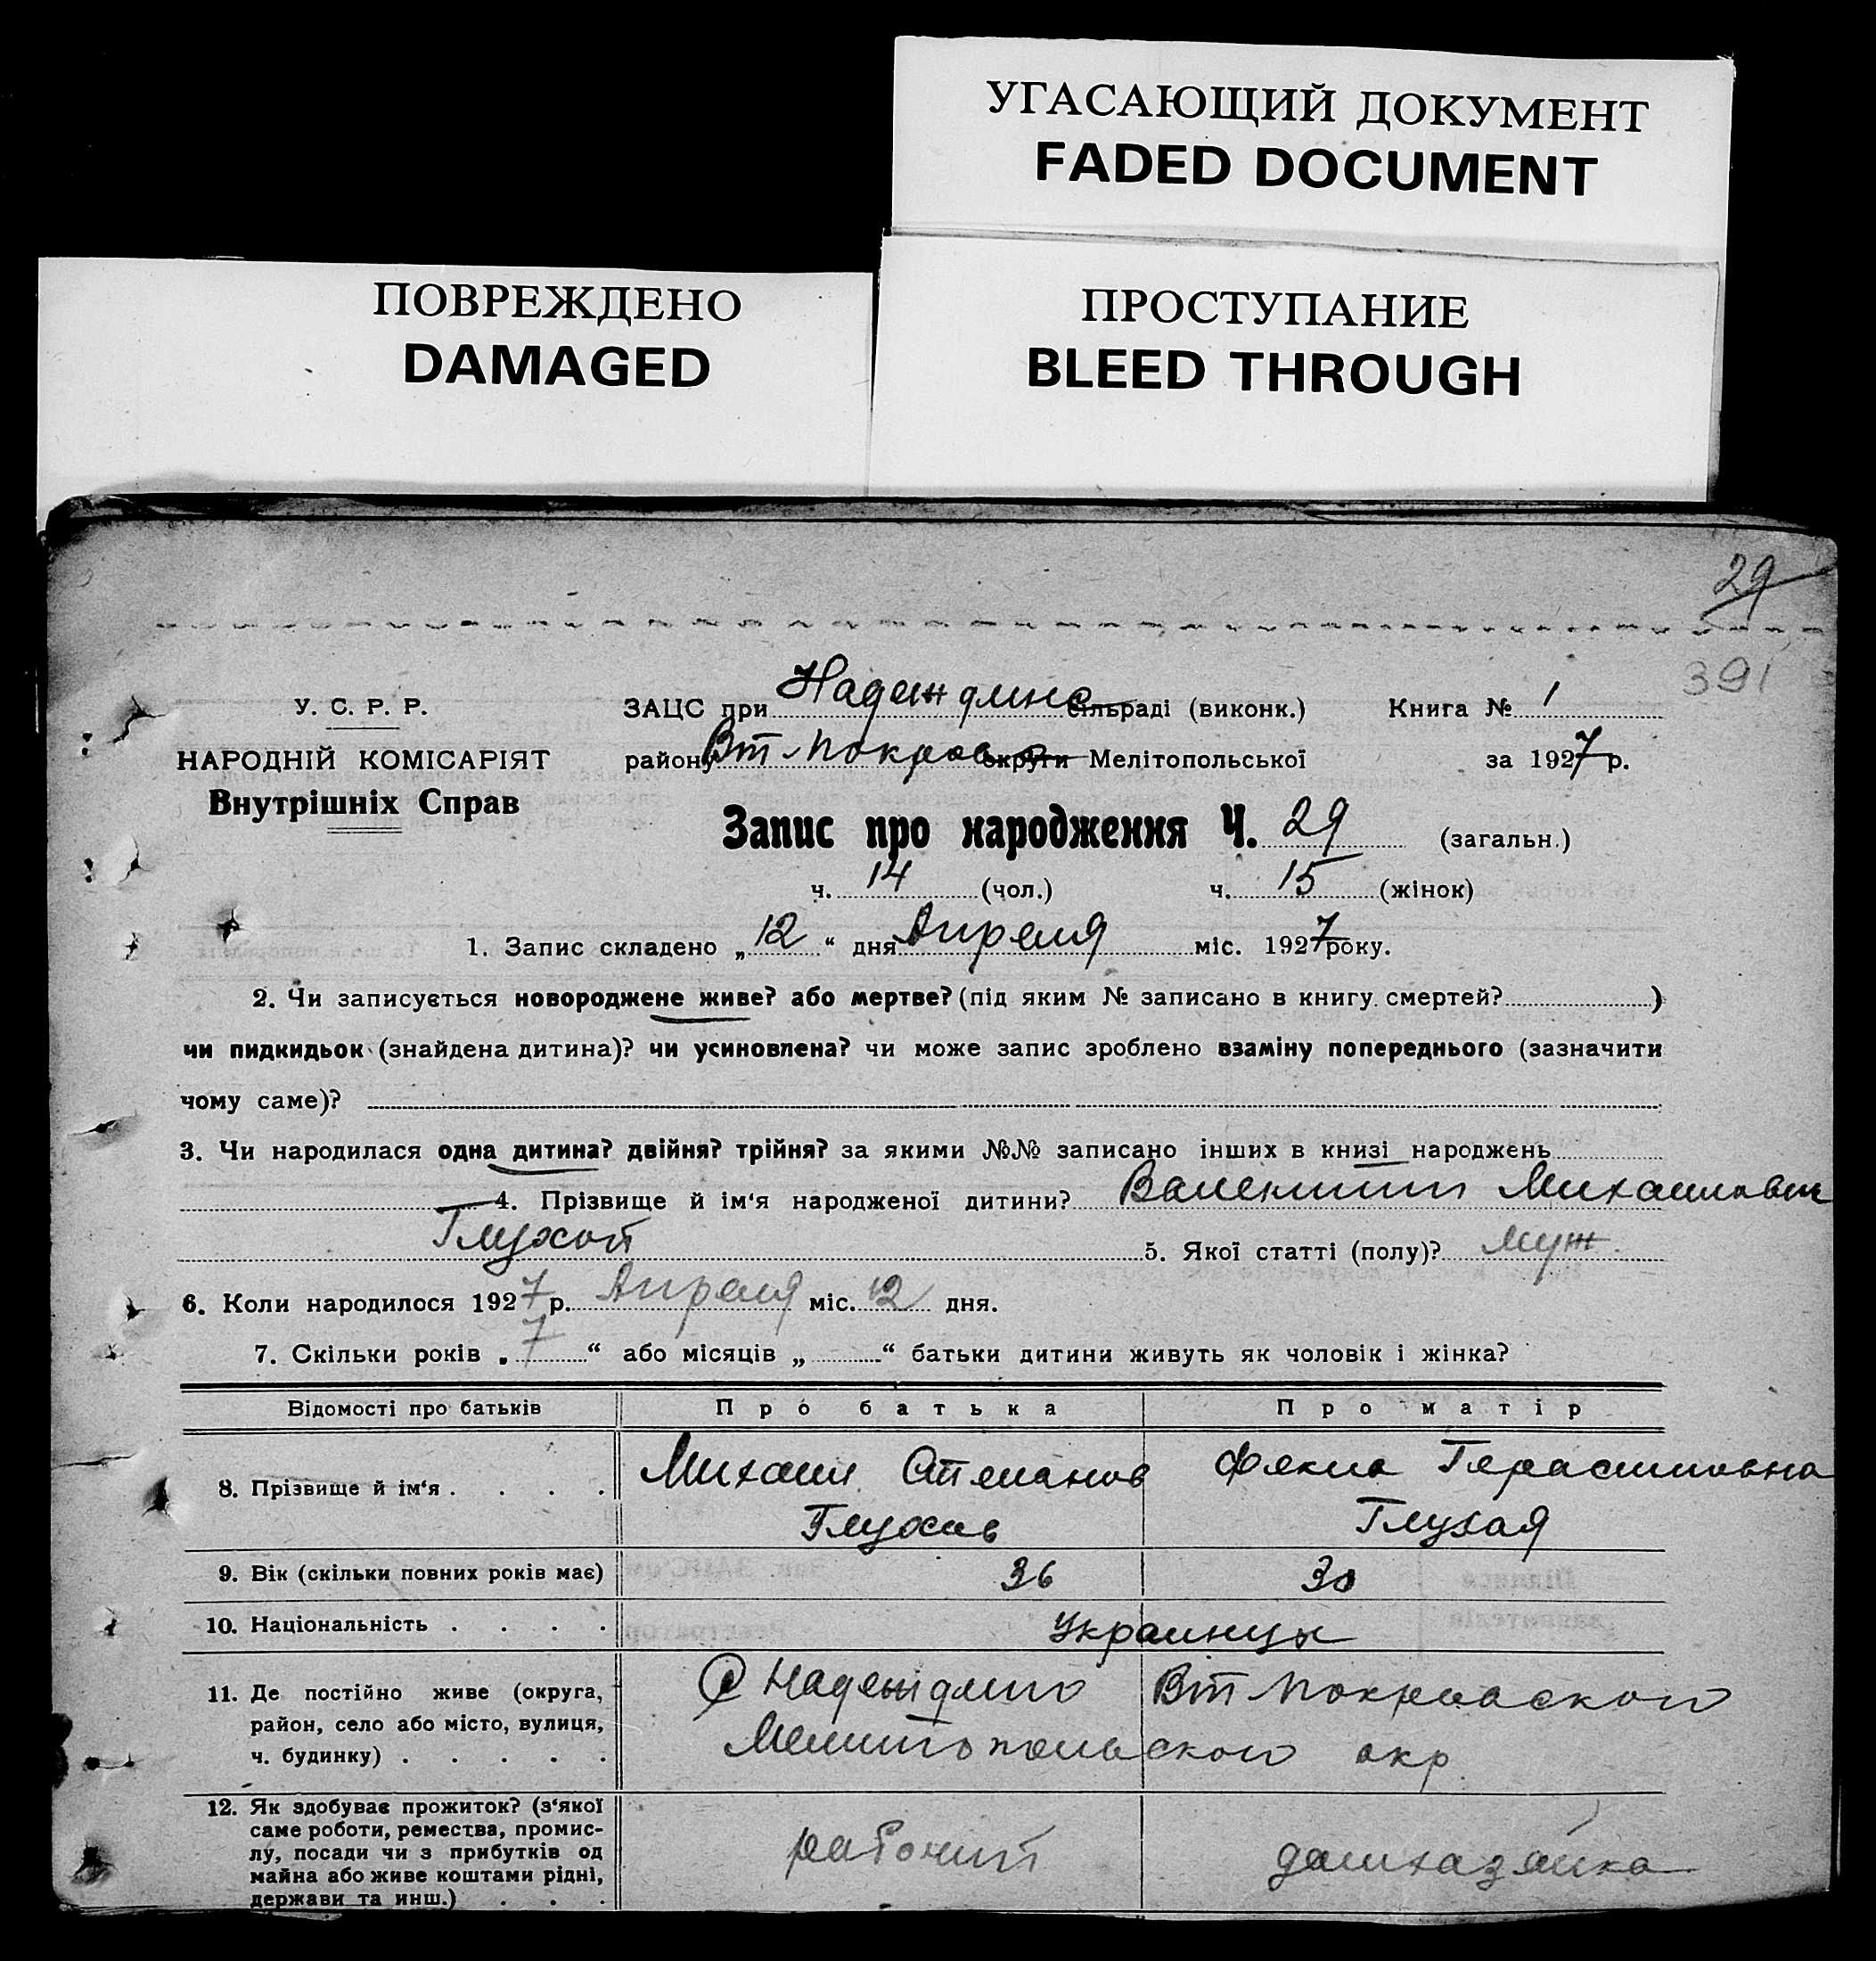 УГАСАЮЩИЙ ДОКУМЕНТ
FADED DOCUMENT
ПОВРЕЖДЕНО
DAMAGED
ПРОСТУПАНИЕ
BLEED THROUGH
29
391
У. С. Р. Р.
НАРОДНІЙ КОМІСАРІЯТ
Внутрішніх Справ
ЗАЦС при Надеждинс сільраді (виконк.) Книга № 1
району Вт Покров округи Мелітопольської за 1927 р.
Запис про народження Ч. 29 (загальн.)
ч. 14 (чол.) ч. 15 (жінок)
1. Запис складено „12“ дня Апреля міс. 1927 року.
2. Чи записується новороджене живе? або мертве? (під яким № записано в книгу смертей? )
чи пидкидьок (знайдена дитина)? чи усиновлена? чи може запис зроблено взаміну попереднього (зазначити
чому саме)?
3. Чи народилася одна дитина? двійня? трійня? за якими №№ записано інших в книзі народжень
4. Прізвище й ім‘я народженої дитини? Валентин Михаилович
Глухой 5. Якої статті (полу)? муж.
6. Коли народилося 1927 р. Апреля міс. 12 дня.
7. Скільки років „7“ або місяців „ “ батьки дитини живуть як чоловік і жінка?
Відомості про батьків Про батька Про матір
8. Прізвище й ім‘я . . . . Михаил Степанов Фекла Герасимовна
Глухов Глухая
9. Вік (скільки повних років має) 36 30
10. Національність . . . . Украинцы
11. Де постійно живе (округа, район, село або місто, вулиця, ч. будинку) . . . . .
С Надеждино Вт Покровского
Мелитопольского окр.
12. Як здобуває прожиток? (з‘якої саме роботи, ремества, промис-
лу, посади чи з прибутків од
майна або живе коштами рідні,
держави та инш.) . . .
рабочий домхазяйка